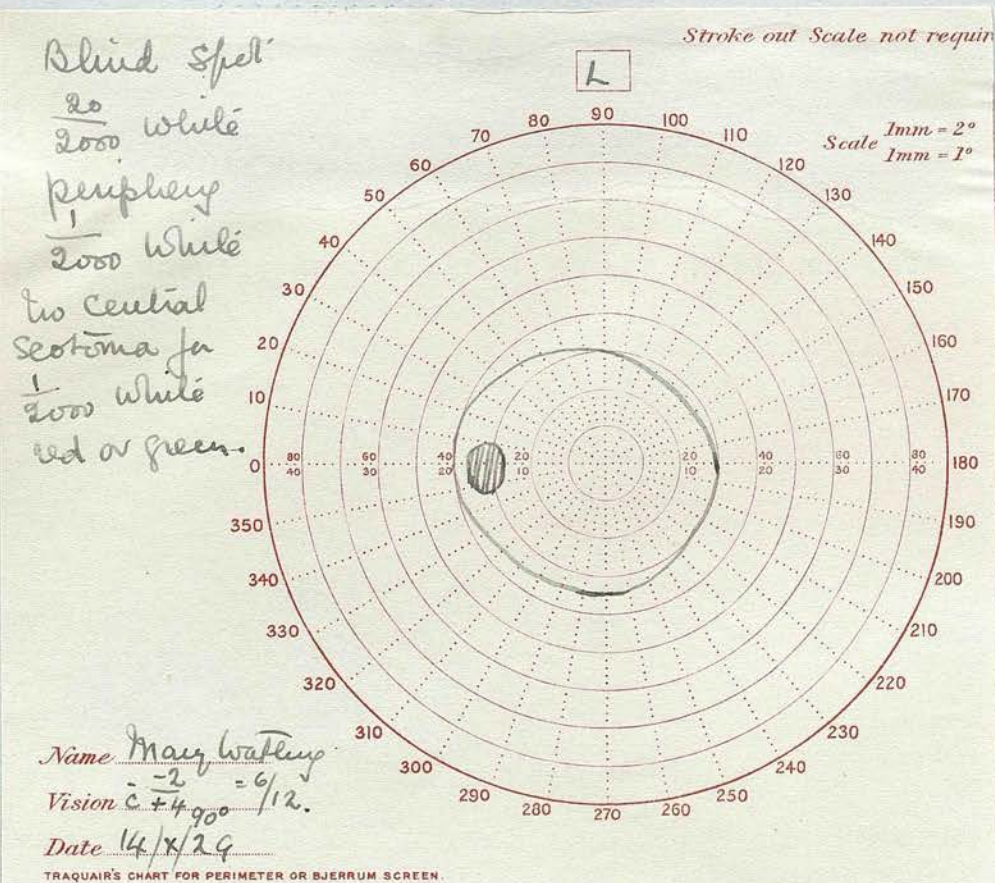 Stroke out Scale not requir
Blind Spot
L
20/2000 white
Scale 1mm = 2°
1mm = 1°
periphery
1/2000 white
no central
scotoma for
1/2000 white
red or green.
90
100
110
120
130
140
150
160
170
180
190
200
210
220
230
240
250
260
270
280
290
300
310
320
330
340
350
0
10
20
30
40
50
60
70
80
80 60 40 20 20 40 60 80
40 30 20 10 10 20 30 40
Name Mary
Vision c̄ -2/+4 90° = 6/12.
Date 14/X/29
TRAQUAIR'S CHART FOR PERIMETER OR BJERRUM SCREEN.